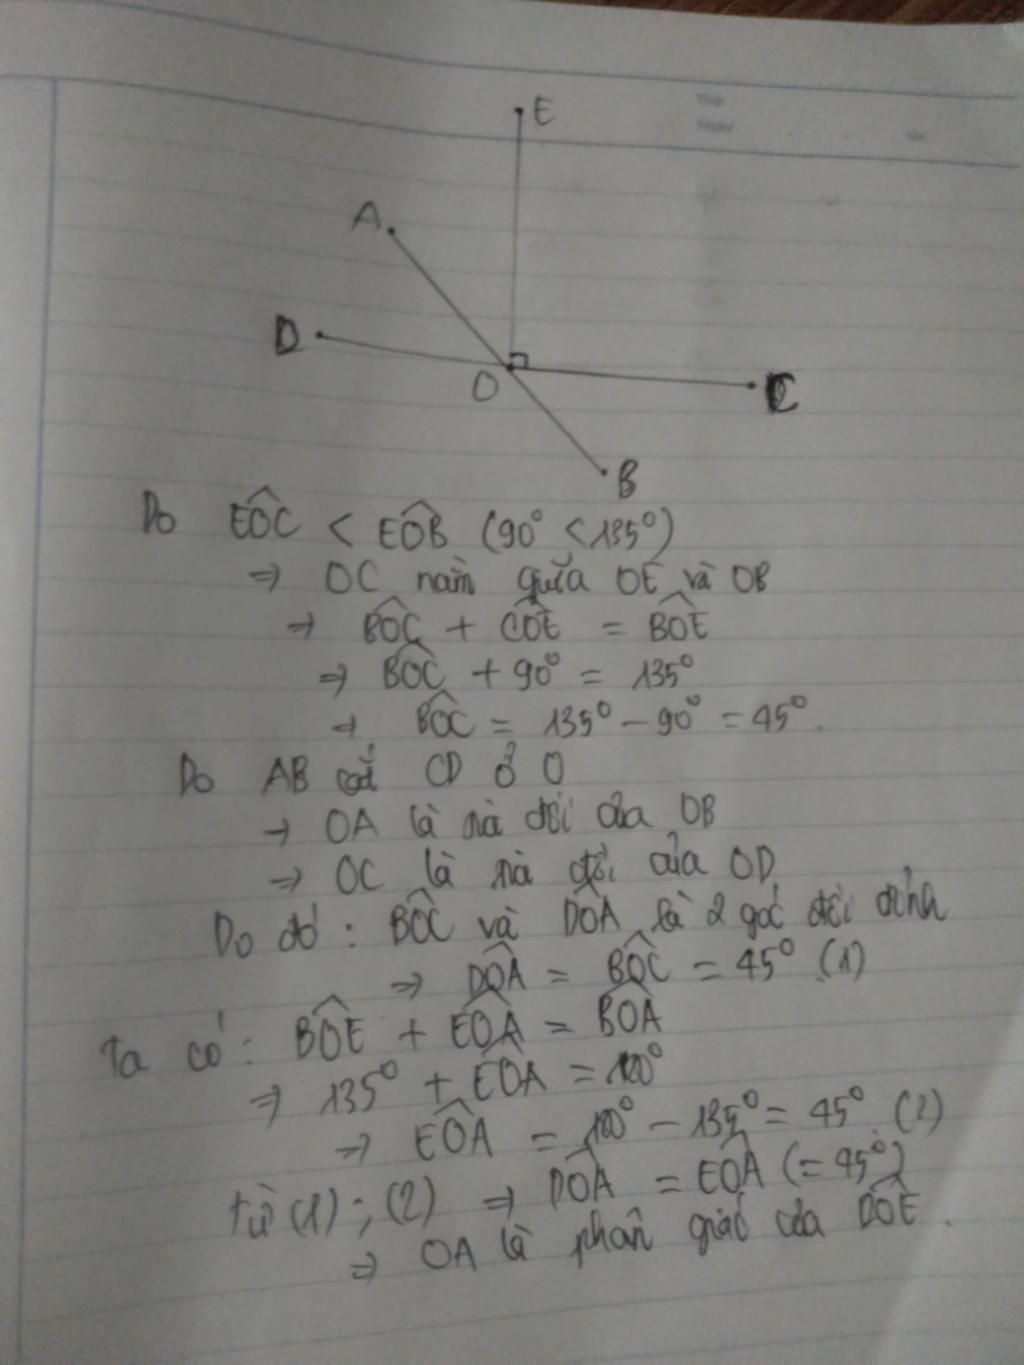 E
A
D
O
C
B
Do EÔC < EÔB (90° < 135°)
⇒ OC nằm giữa OE và OB
⇒ BÔC + CÔE = BÔE
⇒ BÔC + 90° = 135°
⇒ BÔC = 135° - 90° = 45°.
Do AB cắt CD ở O
⇒ OA là tia đối của OB
⇒ OC là tia đối của OD
Do đó : BÔC và DÔA là 2 góc đối đỉnh
⇒ DÔA = BÔC = 45° (1)
Ta có : BÔE + EÔA = BÔA
⇒ 135° + EÔA = 180°
⇒ EÔA = 180° - 135° = 45° (2)
từ (1) ; (2) ⇒ DÔA = EÔA (= 45°)
⇒ OA là phân giác của DÔE .